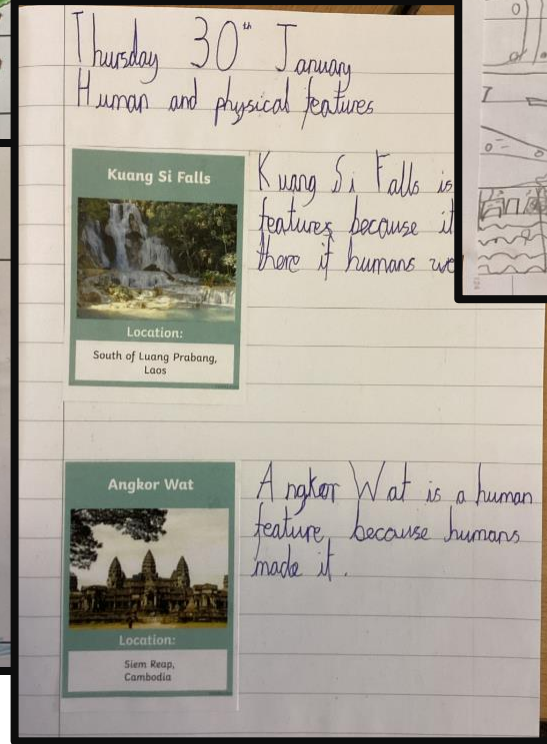 Thursday 30th January
Human and physical features
Kuang Si Falls
Location:
South of Luang Prabang,
Laos
Kuang Si Falls is
features because it
there if humans we
Angkor Wat
Location:
Siem Reap,
Cambodia
Angkor Wat is a human
feature because humans
made it.